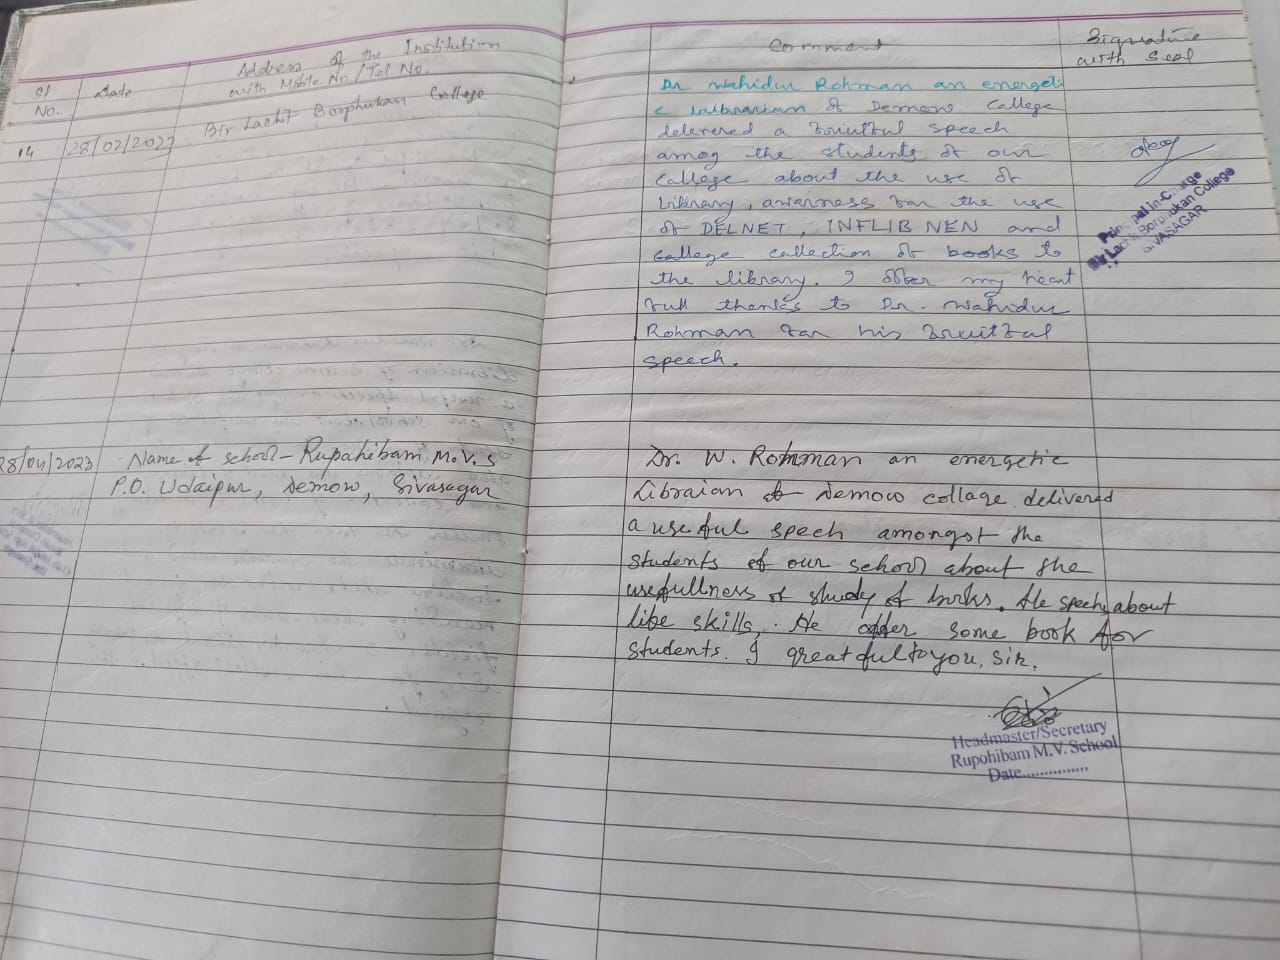 Sl No.
Date
Address of the Institution
with Mobile No./Tel No.
Comment
Signature
with Seal
14
28/02/2023
Bir Lachit Borphukan College
Dr Wahidur Rohman an energeti
c Laibrarian of Demow College
delevered a bruitbul speech
amog the students of our
College about the use of
Library, awarness for the use
of DELNET, INFLIB NEN and
College collection of books to
the library. I offer my heart
full thenks to Dr. Wahidur
Rohman for his bruitbul
speech.
Principal In-Charge
Bir Lachit Borphukan College
SIVASAGAR
28/04/2023
Name of school - Rupahibam M.V.S
P.O. Udaipur, Demow, Sivasagar
Dr. W. Rohman an energetic
Libraian of Demow collage delivered
a useful spech amongst the
students of our school about the
usefullness of study of books. He spech about
life skills, He offer some book for
students. I great ful to you, Sir.
Headmaster/Secretary
Rupohibam M.V. School
Date...............